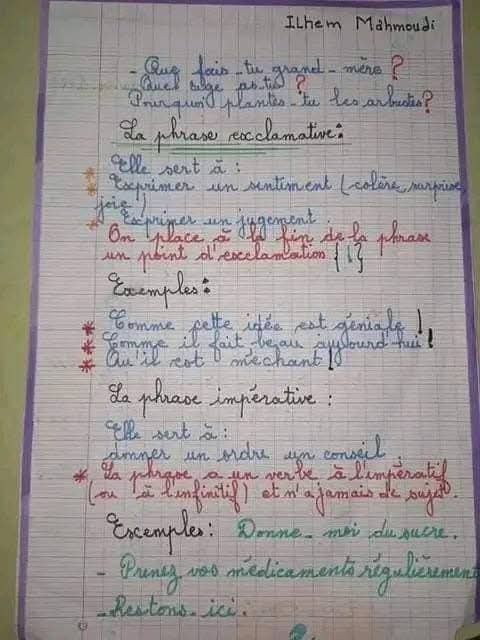 Ilhem Mahmoudi
- Que fais-tu grand-mère ?
Quel âge as-tu ?
Pourquoi plantes-tu les arbustes ?
La phrase exclamative :
Elle sert à :
* Exprimer un sentiment (colère, surprise
joie)
* Exprimer un jugement.
On place à la fin de la phrase
un point d'exclamation {!}
Exemples :
* Comme cette idée est géniale !
* Comme il fait beau aujourd'hui !
* Qu'il est méchant !
La phrase impérative :
Elle sert à :
donner un ordre un conseil.
* La phrase a un verbe à l'impératif
(ou à l'infinitif) et n'a jamais de sujet.
Exemples : Donne-moi du sucre.
- Prenez vos médicaments régulièrement
- Restons ici.